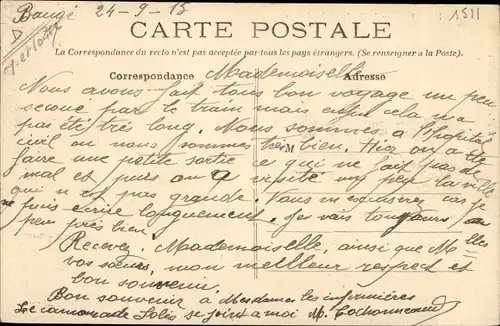 Baugé 24-9-15
1511
CARTE POSTALE
La Correspondance du recto n'est pas acceptée par tous les pays étrangers. (Se renseigner à la Poste).
Correspondance Adresse
Mademoiselle
Nous avons fait tous bon voyage un peu
secoué par le train mais enfin cela n'a
pas été très long. Nous sommes à l'hopital
civil ou nous sommes très bien. Hier on a été
M
faire une petite sortie ce qui ne fait pas de
mal et puis on a visité un peu la ville
qui n'est pas grande. Vous m'excuserez car je
ne puis écrire longuement. Je vais toujours
peu près bien.
Recevez, Mademoiselle, ainsi que
vos sœurs, mon meilleur respect et
bon souvenir.
Bon souvenir à Mesdames les infirmières
Le camarade Solis se joint à moi M.